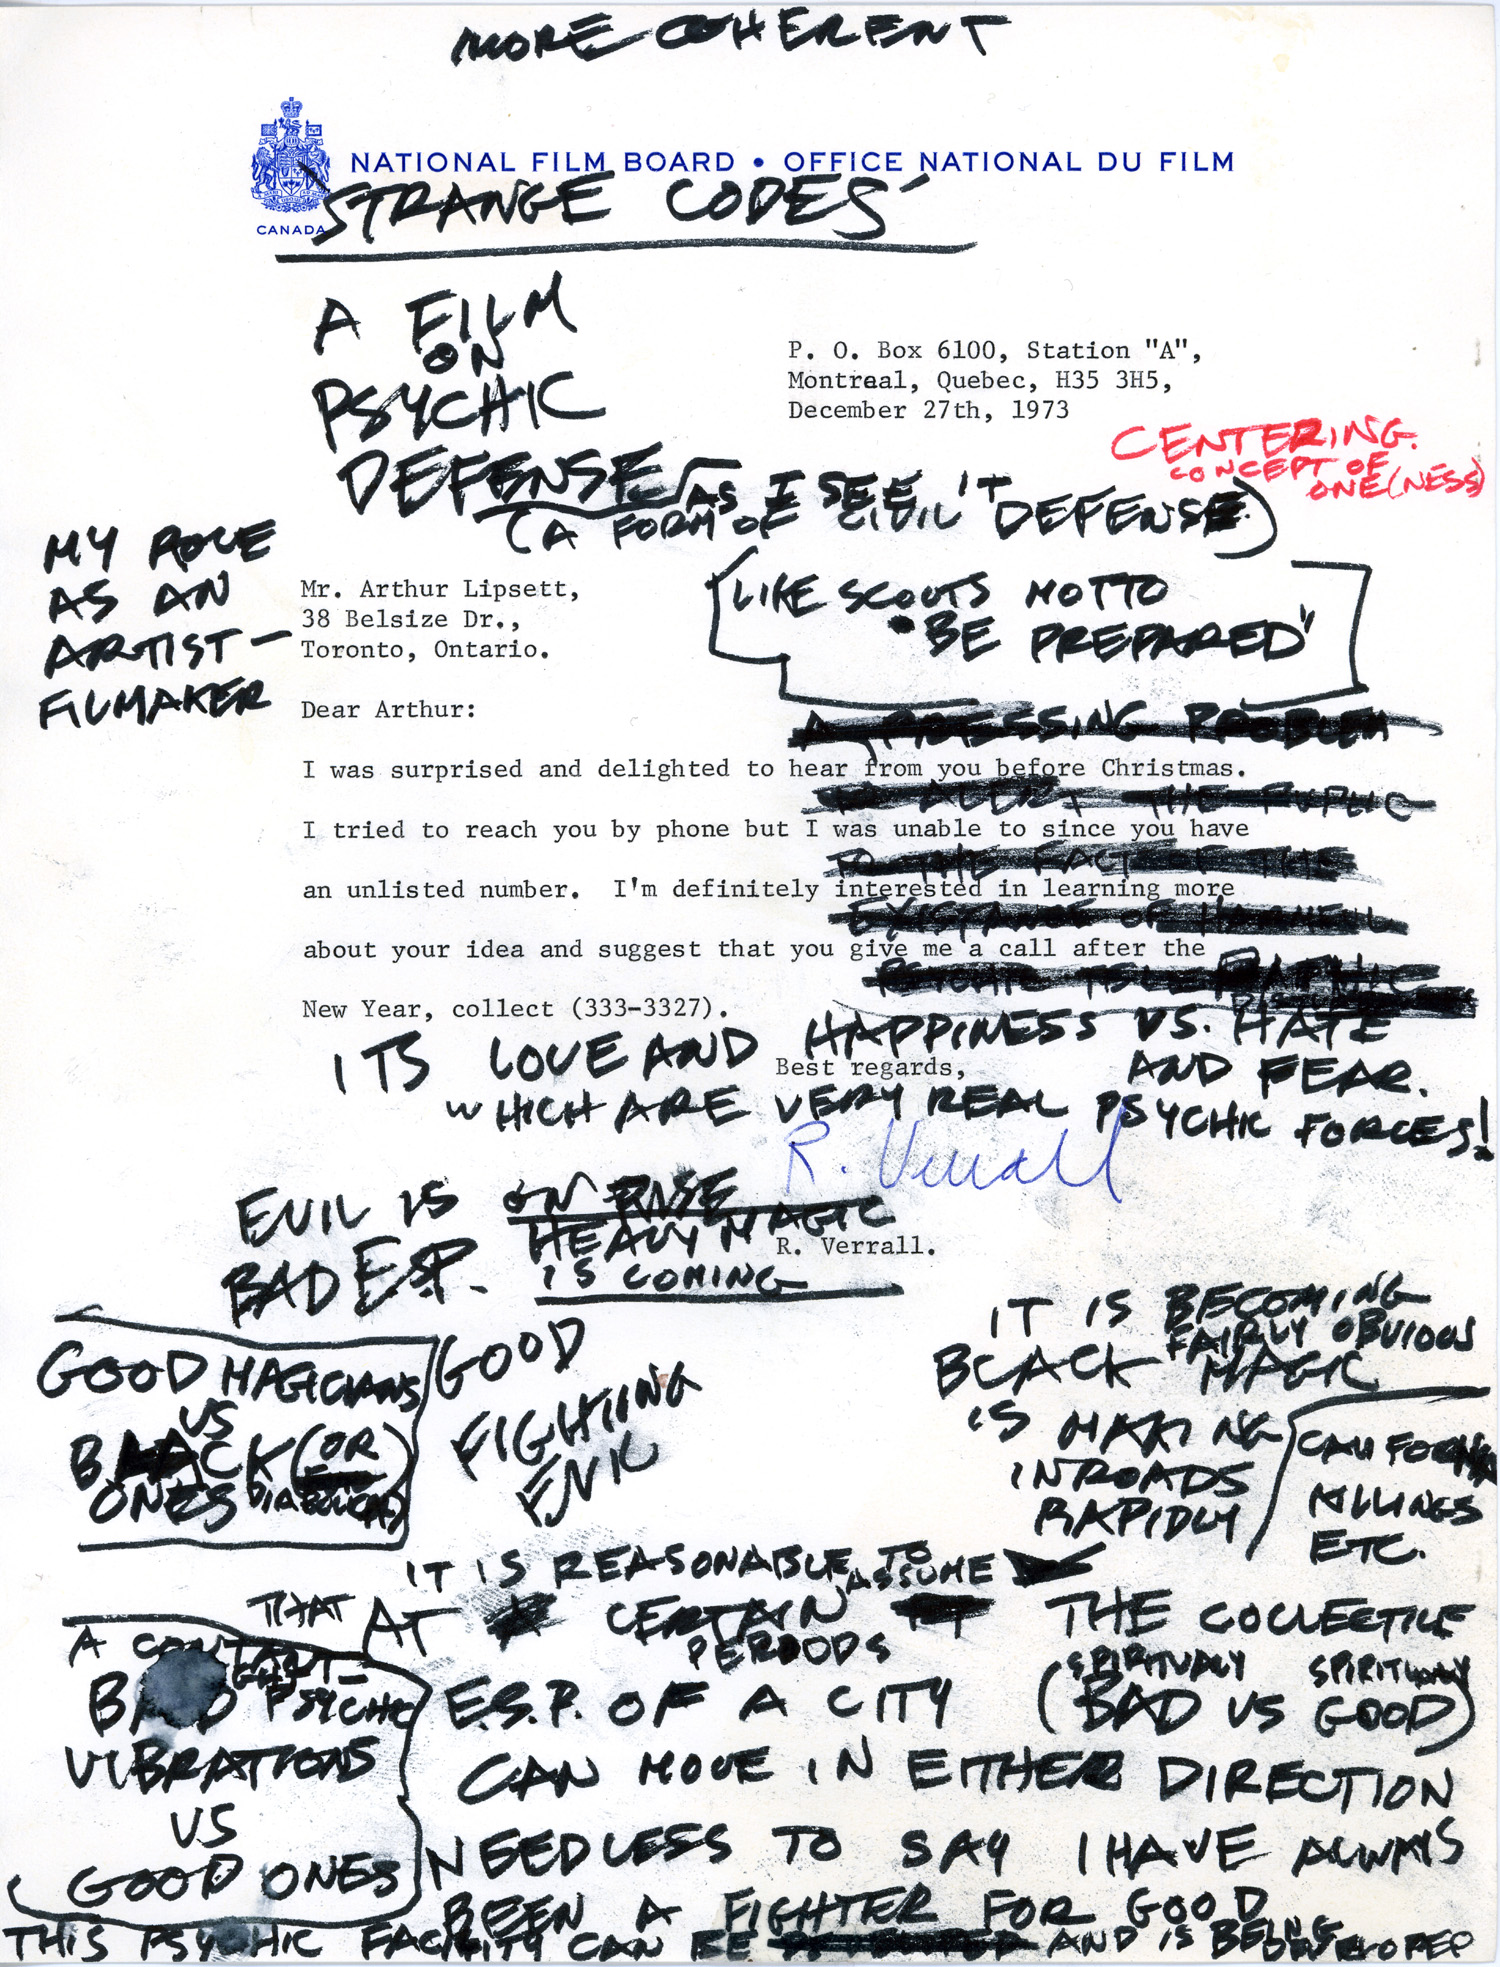 MORE COHERENT
NATIONAL FILM BOARD • OFFICE NATIONAL DU FILM
CANADA
STRANGE CODES
A FILM
ON
PSYCHIC
DEFENSE AS I SEE IT
(A FORM OF CIVIL DEFENSE)
P. O. Box 6100, Station "A",
Montreal, Quebec, H35 3H5,
December 27th, 1973
CENTERING.
CONCEPT OF
ONE(NESS)
MY ROLE
AS AN
ARTIST—
FILMAKER
Mr. Arthur Lipsett,
38 Belsize Dr.,
Toronto, Ontario.
(LIKE SCOUTS MOTTO
"BE PREPARED"
Dear Arthur:
A PRESSING PROBLEM
I was surprised and delighted to hear from you before Christmas.
ALERT THE PUBLIC
I tried to reach you by phone but I was unable to since you have
TO THE FACT OF THE
an unlisted number. I'm definitely interested in learning more
EXISTANCE OF
about your idea and suggest that you give me a call after the
PSYCHIC
New Year, collect (333-3327).
ITS LOVE AND HAPPINESS VS. HATE
AND FEAR.
Best regards,
WHICH ARE VERY REAL PSYCHIC FORCES!
R. Verrall
R. Verrall.
EVIL IS
BAD E.S.P.
ON RISE
HEAVY MAGIC
IS COMING
GOOD MAGICIANS
VS
BLACK (OR
ONES DIABOLICAL)
GOOD
FIGHTING
EVIL
IT IS BECOMING
FAIRLY OBVIOUS
BLACK MAGIC
IS MAKING
INROADS
RAPIDLY
CALIFORNIA
KILLINGS
ETC.
IT IS REASONABLE TO
ASSUME
THAT AT CERTAIN THE COLLECTIVE
PERIODS
SPIRITUALLY SPIRITUALLY
E.S.P. OF A CITY (BAD VS GOOD)
CAN MOVE IN EITHER DIRECTION
A
BAD PSYCHIC
VIBRATIONS
VS
GOOD ONES
NEEDLESS TO SAY I HAVE ALWAYS
BEEN A FIGHTER FOR GOOD
THIS PSYCHIC FACILITY CAN BE AND IS BEING
DEVELOPED